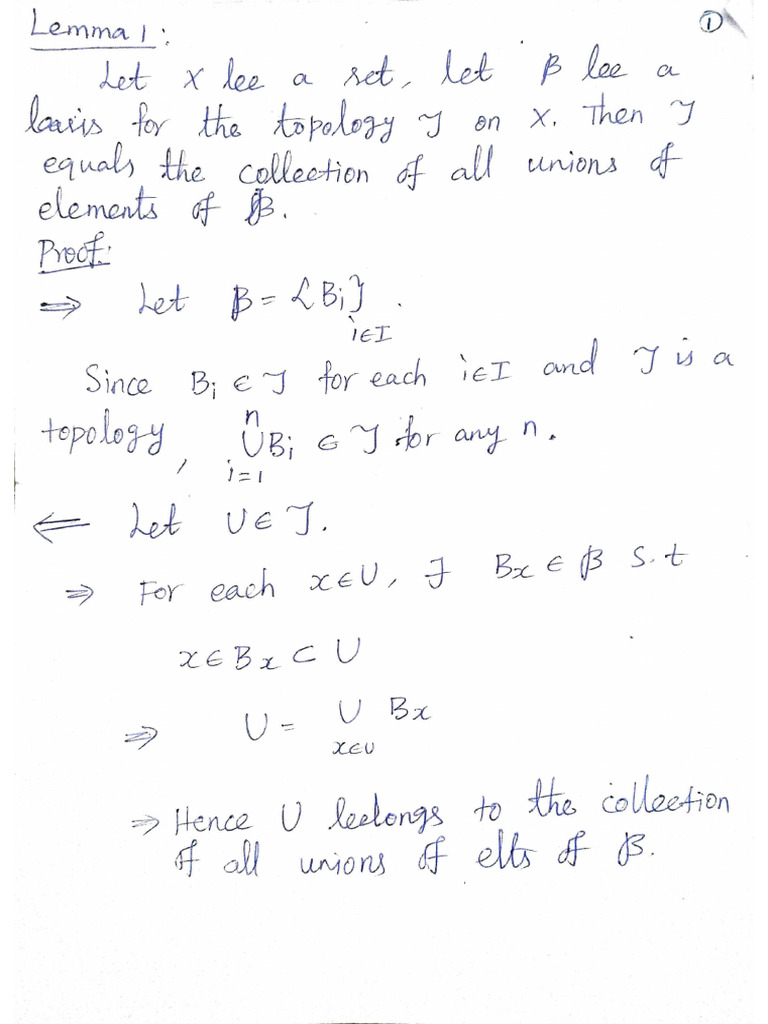 Lemma 1: ①
Let X be a set, let β be a
basis for the topology J on X. Then J
equals the collection of all unions of
elements of β.
Proof:
⇒ Let β = {Bi}
i∈I
Since Bi ∈ J for each i∈I and J is a
topology, n
∪ Bi ∈ J for any n.
i=1
⇐ Let U ∈ J.
⇒ For each x∈U, ∃ Bx ∈ β s.t
x∈Bx ⊂ U
⇒ U = ∪ Bx
x∈U
⇒ Hence U belongs to the collection
of all unions of elts of β.